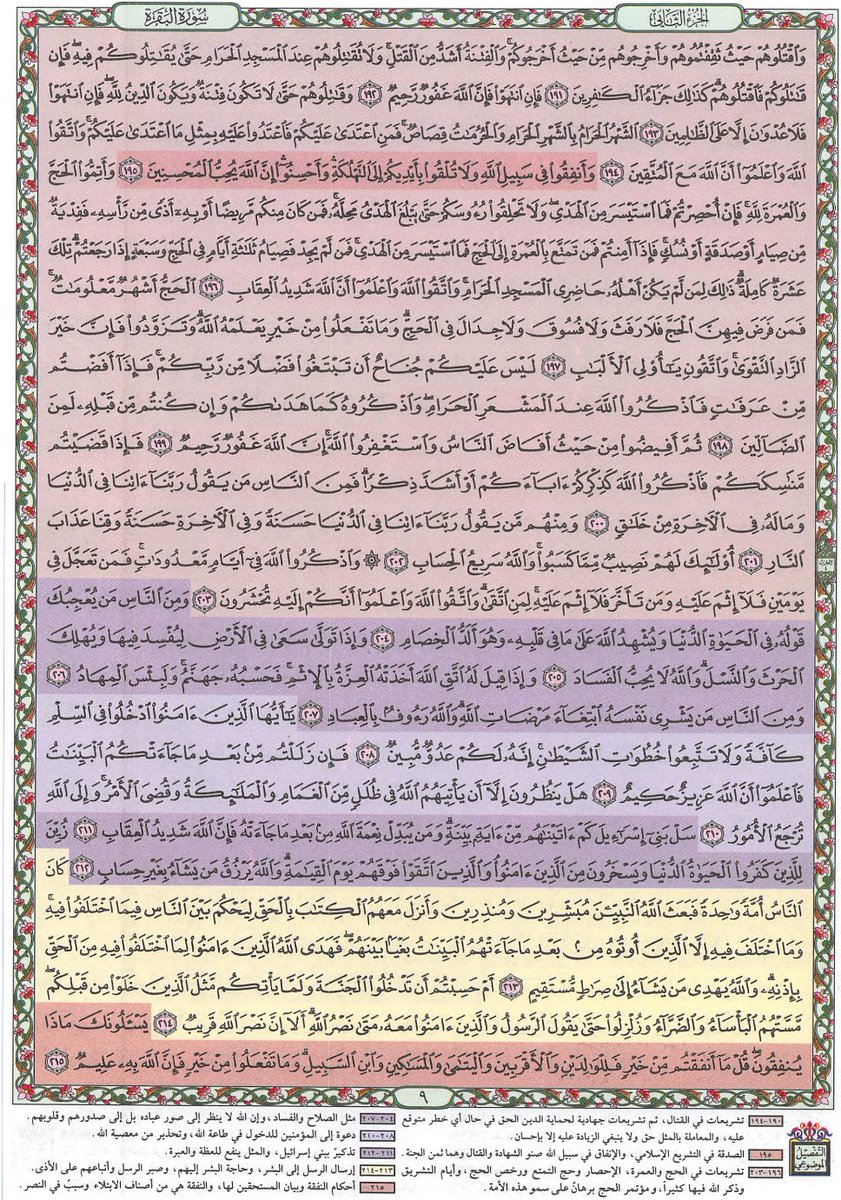 الجزء الثاني
سورة البقرة
وَاقْتُلُوهُمْ حَيْثُ ثَقِفْتُمُوهُمْ وَأَخْرِجُوهُم مِّنْ حَيْثُ أَخْرَجُوكُمْ ۚ وَالْفِتْنَةُ أَشَدُّ مِنَ الْقَتْلِ ۚ وَلَا تُقَاتِلُوهُمْ عِندَ الْمَسْجِدِ الْحَرَامِ حَتَّىٰ يُقَاتِلُوكُمْ فِيهِ ۖ فَإِن
قَاتَلُوكُمْ فَاقْتُلُوهُمْ ۗ كَذَٰلِكَ جَزَاءُ الْكَافِرِينَ ١٩١ فَإِنِ انتَهَوْا فَإِنَّ اللَّهَ غَفُورٌ رَّحِيمٌ ١٩٢ وَقَاتِلُوهُمْ حَتَّىٰ لَا تَكُونَ فِتْنَةٌ وَيَكُونَ الدِّينُ لِلَّهِ ۖ فَإِنِ انتَهَوْا
فَلَا عُدْوَانَ إِلَّا عَلَى الظَّالِمِينَ ١٩٣ الشَّهْرُ الْحَرَامُ بِالشَّهْرِ الْحَرَامِ وَالْحُرُمَاتُ قِصَاصٌ ۚ فَمَنِ اعْتَدَىٰ عَلَيْكُمْ فَاعْتَدُوا عَلَيْهِ بِمِثْلِ مَا اعْتَدَىٰ عَلَيْكُمْ ۚ وَاتَّقُوا
اللَّهَ وَاعْلَمُوا أَنَّ اللَّهَ مَعَ الْمُتَّقِينَ ١٩٤ وَأَنفِقُوا فِي سَبِيلِ اللَّهِ وَلَا تُلْقُوا بِأَيْدِيكُمْ إِلَى التَّهْلُكَةِ ۛ وَأَحْسِنُوا ۛ إِنَّ اللَّهَ يُحِبُّ الْمُحْسِنِينَ ١٩٥ وَأَتِمُّوا الْحَجَّ
وَالْعُمْرَةَ لِلَّهِ ۚ فَإِنْ أُحْصِرْتُمْ فَمَا اسْتَيْسَرَ مِنَ الْهَدْيِ ۖ وَلَا تَحْلِقُوا رُءُوسَكُمْ حَتَّىٰ يَبْلُغَ الْهَدْيُ مَحِلَّهُ ۚ فَمَن كَانَ مِنكُم مَّرِيضًا أَوْ بِهِ أَذًى مِّن رَّأْسِهِ فَفِدْيَةٌ
مِّن صِيَامٍ أَوْ صَدَقَةٍ أَوْ نُسُكٍ ۚ فَإِذَا أَمِنتُمْ فَمَن تَمَتَّعَ بِالْعُمْرَةِ إِلَى الْحَجِّ فَمَا اسْتَيْسَرَ مِنَ الْهَدْيِ ۚ فَمَن لَّمْ يَجِدْ فَصِيَامُ ثَلَاثَةِ أَيَّامٍ فِي الْحَجِّ وَسَبْعَةٍ إِذَا رَجَعْتُمْ ۗ تِلْكَ
عَشَرَةٌ كَامِلَةٌ ۗ ذَٰلِكَ لِمَن لَّمْ يَكُنْ أَهْلُهُ حَاضِرِي الْمَسْجِدِ الْحَرَامِ ۚ وَاتَّقُوا اللَّهَ وَاعْلَمُوا أَنَّ اللَّهَ شَدِيدُ الْعِقَابِ ١٩٦ الْحَجُّ أَشْهُرٌ مَّعْلُومَاتٌ ۚ
فَمَن فَرَضَ فِيهِنَّ الْحَجَّ فَلَا رَفَثَ وَلَا فُسُوقَ وَلَا جِدَالَ فِي الْحَجِّ ۗ وَمَا تَفْعَلُوا مِنْ خَيْرٍ يَعْلَمْهُ اللَّهُ ۗ وَتَزَوَّدُوا فَإِنَّ خَيْرَ
الزَّادِ التَّقْوَىٰ ۚ وَاتَّقُونِ يَا أُولِي الْأَلْبَابِ ١٩٧ لَيْسَ عَلَيْكُمْ جُنَاحٌ أَن تَبْتَغُوا فَضْلًا مِّن رَّبِّكُمْ ۚ فَإِذَا أَفَضْتُم
مِّنْ عَرَفَاتٍ فَاذْكُرُوا اللَّهَ عِندَ الْمَشْعَرِ الْحَرَامِ ۖ وَاذْكُرُوهُ كَمَا هَدَاكُمْ وَإِن كُنتُم مِّن قَبْلِهِ لَمِنَ
الضَّالِّينَ ١٩٨ ثُمَّ أَفِيضُوا مِنْ حَيْثُ أَفَاضَ النَّاسُ وَاسْتَغْفِرُوا اللَّهَ ۚ إِنَّ اللَّهَ غَفُورٌ رَّحِيمٌ ١٩٩ فَإِذَا قَضَيْتُم
مَّنَاسِكَكُمْ فَاذْكُرُوا اللَّهَ كَذِكْرِكُمْ آبَاءَكُمْ أَوْ أَشَدَّ ذِكْرًا ۗ فَمِنَ النَّاسِ مَن يَقُولُ رَبَّنَا آتِنَا فِي الدُّنْيَا
وَمَا لَهُ فِي الْآخِرَةِ مِنْ خَلَاقٍ ٢٠٠ وَمِنْهُم مَّن يَقُولُ رَبَّنَا آتِنَا فِي الدُّنْيَا حَسَنَةً وَفِي الْآخِرَةِ حَسَنَةً وَقِنَا عَذَابَ
النَّارِ ٢٠١ أُولَٰئِكَ لَهُمْ نَصِيبٌ مِّمَّا كَسَبُوا ۚ وَاللَّهُ سَرِيعُ الْحِسَابِ ٢٠٢ ۞ وَاذْكُرُوا اللَّهَ فِي أَيَّامٍ مَّعْدُودَاتٍ ۚ فَمَن تَعَجَّلَ فِي
يَوْمَيْنِ فَلَا إِثْمَ عَلَيْهِ وَمَن تَأَخَّرَ فَلَا إِثْمَ عَلَيْهِ ۚ لِمَنِ اتَّقَىٰ ۗ وَاتَّقُوا اللَّهَ وَاعْلَمُوا أَنَّكُمْ إِلَيْهِ تُحْشَرُونَ ٢٠٣ وَمِنَ النَّاسِ مَن يُعْجِبُكَ
قَوْلُهُ فِي الْحَيَاةِ الدُّنْيَا وَيُشْهِدُ اللَّهَ عَلَىٰ مَا فِي قَلْبِهِ وَهُوَ أَلَدُّ الْخِصَامِ ٢٠٤ وَإِذَا تَوَلَّىٰ سَعَىٰ فِي الْأَرْضِ لِيُفْسِدَ فِيهَا وَيُهْلِكَ
الْحَرْثَ وَالنَّسْلَ ۗ وَاللَّهُ لَا يُحِبُّ الْفَسَادَ ٢٠٥ وَإِذَا قِيلَ لَهُ اتَّقِ اللَّهَ أَخَذَتْهُ الْعِزَّةُ بِالْإِثْمِ ۚ فَحَسْبُهُ جَهَنَّمُ ۚ وَلَبِئْسَ الْمِهَادُ ٢٠٦
وَمِنَ النَّاسِ مَن يَشْرِي نَفْسَهُ ابْتِغَاءَ مَرْضَاتِ اللَّهِ ۗ وَاللَّهُ رَءُوفٌ بِالْعِبَادِ ٢٠٧ يَا أَيُّهَا الَّذِينَ آمَنُوا ادْخُلُوا فِي السِّلْمِ
كَافَّةً وَلَا تَتَّبِعُوا خُطُوَاتِ الشَّيْطَانِ ۚ إِنَّهُ لَكُمْ عَدُوٌّ مُّبِينٌ ٢٠٨ فَإِن زَلَلْتُم مِّن بَعْدِ مَا جَاءَتْكُمُ الْبَيِّنَاتُ
فَاعْلَمُوا أَنَّ اللَّهَ عَزِيزٌ حَكِيمٌ ٢٠٩ هَلْ يَنظُرُونَ إِلَّا أَن يَأْتِيَهُمُ اللَّهُ فِي ظُلَلٍ مِّنَ الْغَمَامِ وَالْمَلَائِكَةُ وَقُضِيَ الْأَمْرُ ۚ وَإِلَى اللَّهِ
تُرْجَعُ الْأُمُورُ ٢١٠ سَلْ بَنِي إِسْرَائِيلَ كَمْ آتَيْنَاهُم مِّنْ آيَةٍ بَيِّنَةٍ ۗ وَمَن يُبَدِّلْ نِعْمَةَ اللَّهِ مِن بَعْدِ مَا جَاءَتْهُ فَإِنَّ اللَّهَ شَدِيدُ الْعِقَابِ ٢١١ زُيِّنَ
لِلَّذِينَ كَفَرُوا الْحَيَاةُ الدُّنْيَا وَيَسْخَرُونَ مِنَ الَّذِينَ آمَنُوا ۘ وَالَّذِينَ اتَّقَوْا فَوْقَهُمْ يَوْمَ الْقِيَامَةِ ۗ وَاللَّهُ يَرْزُقُ مَن يَشَاءُ بِغَيْرِ حِسَابٍ ٢١٢ كَانَ
النَّاسُ أُمَّةً وَاحِدَةً فَبَعَثَ اللَّهُ النَّبِيِّينَ مُبَشِّرِينَ وَمُنذِرِينَ وَأَنزَلَ مَعَهُمُ الْكِتَابَ بِالْحَقِّ لِيَحْكُمَ بَيْنَ النَّاسِ فِيمَا اخْتَلَفُوا فِيهِ ۚ
وَمَا اخْتَلَفَ فِيهِ إِلَّا الَّذِينَ أُوتُوهُ مِن بَعْدِ مَا جَاءَتْهُمُ الْبَيِّنَاتُ بَغْيًا بَيْنَهُمْ ۖ فَهَدَى اللَّهُ الَّذِينَ آمَنُوا لِمَا اخْتَلَفُوا فِيهِ مِنَ الْحَقِّ
بِإِذْنِهِ ۗ وَاللَّهُ يَهْدِي مَن يَشَاءُ إِلَىٰ صِرَاطٍ مُّسْتَقِيمٍ ٢١٣ أَمْ حَسِبْتُمْ أَن تَدْخُلُوا الْجَنَّةَ وَلَمَّا يَأْتِكُم مَّثَلُ الَّذِينَ خَلَوْا مِن قَبْلِكُم ۖ
مَّسَّتْهُمُ الْبَأْسَاءُ وَالضَّرَّاءُ وَزُلْزِلُوا حَتَّىٰ يَقُولَ الرَّسُولُ وَالَّذِينَ آمَنُوا مَعَهُ مَتَىٰ نَصْرُ اللَّهِ ۗ أَلَا إِنَّ نَصْرَ اللَّهِ قَرِيبٌ ٢١٤ يَسْأَلُونَكَ مَاذَا
يُنفِقُونَ ۖ قُلْ مَا أَنفَقْتُم مِّنْ خَيْرٍ فَلِلْوَالِدَيْنِ وَالْأَقْرَبِينَ وَالْيَتَامَىٰ وَالْمَسَاكِينِ وَابْنِ السَّبِيلِ ۗ وَمَا تَفْعَلُوا مِنْ خَيْرٍ فَإِنَّ اللَّهَ بِهِ عَلِيمٌ ٢١٥
٩
التفصيل الموضوعي
١٩٠-١٩٤ تشريعات في القتال، ثم تشريعات جهادية لحماية الدين الحق في حال أي خطر متوقع
عليه، والمعاملة بالمثل حق ولا ينبغي الزيادة عليه إلا بإحسان.
١٩٥ الصدقة في التشريع الإسلامي، والإنفاق في سبيل الله صنو الشهادة والقتال وهما ثمن الجنة.
١٩٦-٢٠٣ تشريعات في الحج والعمرة، الإحصار وحج التمتع ورخص الحج، وأيام التشريق
وذكر الله فيها كثيراً، ومؤتمر الحج برهان على سمو هذه الأمة.
٢٠٤-٢٠٧ مثل الصلاح والفساد، وإن الله لا ينظر إلى صور عباده بل إلى صدورهم وقلوبهم.
٢٠٨-٢١٠ دعوة إلى المؤمنين للدخول في طاعة الله، وتحذير من معصية الله.
٢١١-٢١٢ تذكير ببني إسرائيل، والمثل ينفع للعظة والعبرة.
٢١٣-٢١٤ إرسال الرسل إلى البشر، وحاجة البشر إليهم، وصبر الرسل وأتباعهم على الأذى.
٢١٥ أحكام النفقة وبيان المستحقين لها، والنفقة هي من أصناف الابتلاء وسبب في النصر.